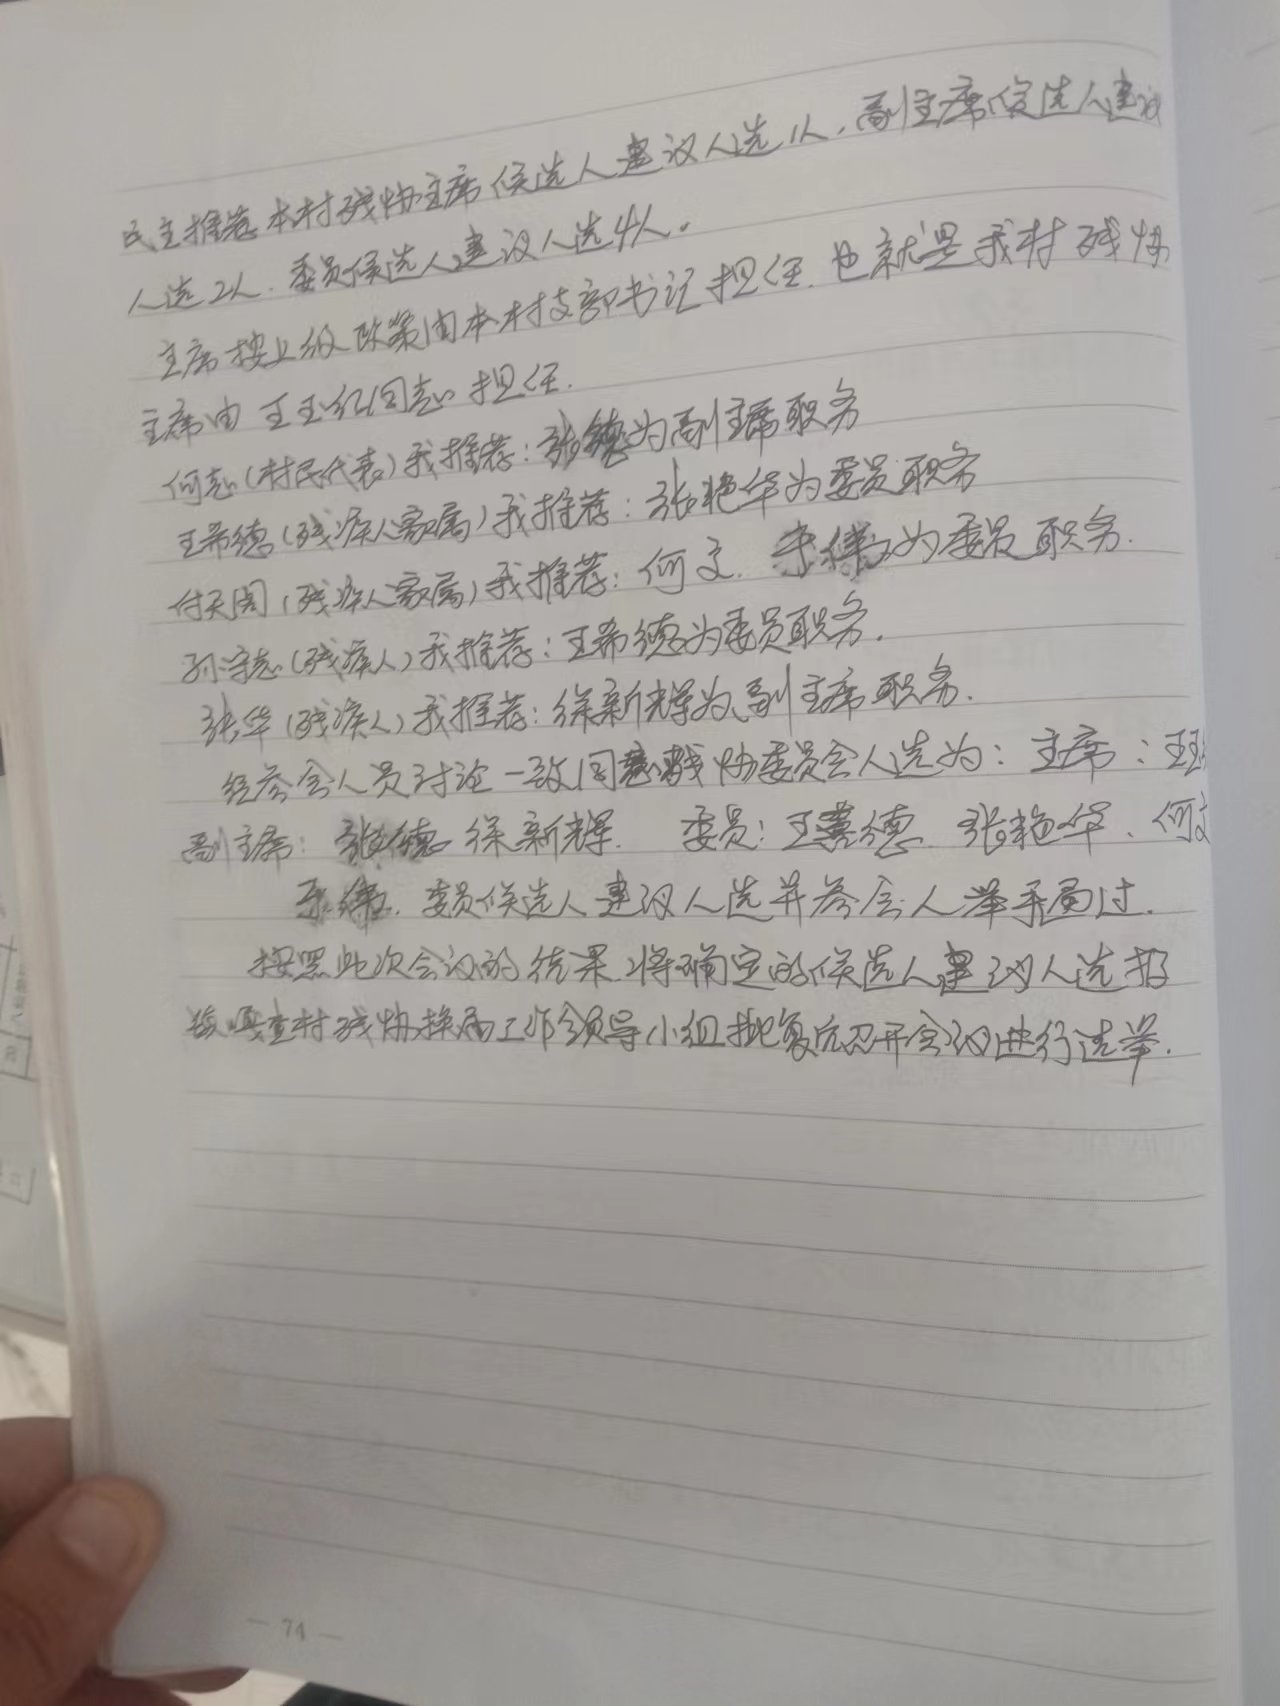 民主推荐本村残协主席候选人建议人选1人，副主席候选人建议
人选2人，委员候选人建议人选4人。
主席按上级政策由本村支部书记担任，也就是我村残协
主席由王玉红同志担任。
何志(村民代表)我推荐：张德为副主席职务
王希德(残疾人家属)我推荐：张艳华为委员职务
付天阁(残疾人家属)我推荐：何文、李伟为委员职务.
孙守志(残疾人)我推荐：王希德为委员职务.
张华(残疾人)我推荐：徐新辉为副主席职务.
经参会人员讨论一致同意残协委员会人选为：主席：王玉
副主席：张德 徐新辉. 委员：王喜德、张艳华、何文
委员候选人建议人选并参会人举手通过.
按照此次会议的结果，将确定的候选人建议人选报
镇 村残协换届工作领导小组批复后召开会议进行选举.
— 74 —